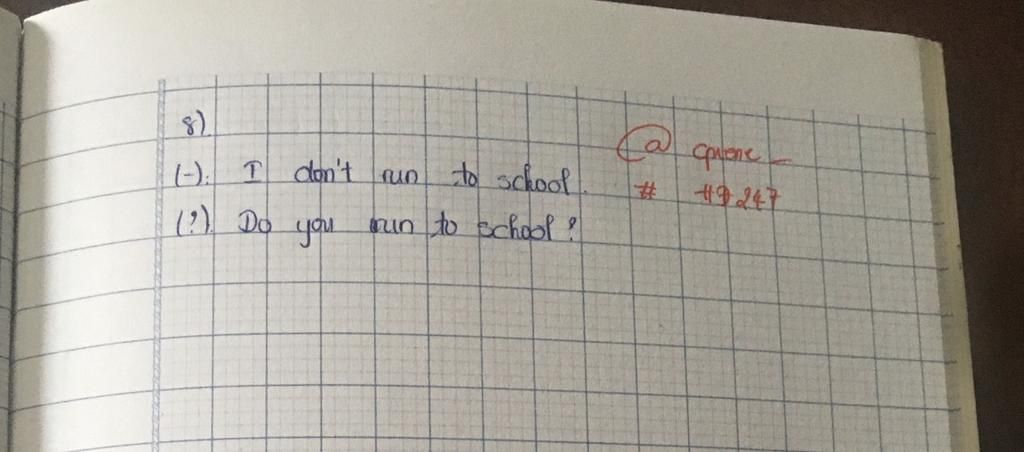 8)
(-). I don't run to school.
(?). Do you run to school?
@
# #9247